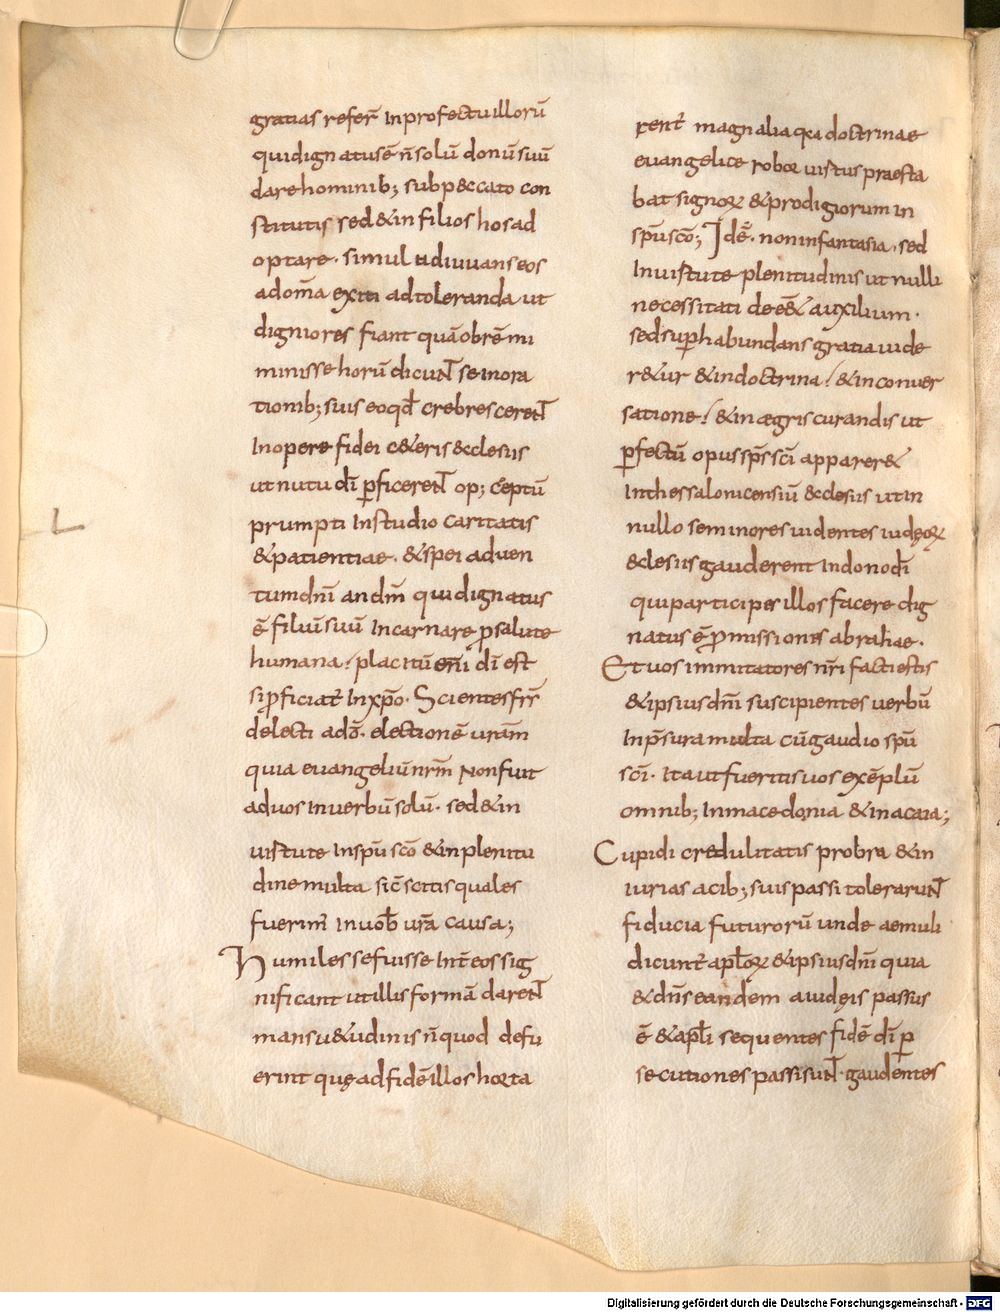 gratias referr̄ Inprofectuillorū
quidignatusē n̄ solū donūsuū
darehominib; subp&ccato con
stitutis sed&in filios hosad
optare. simul adiuuanseos
adom̄a exiti adtoleranda ut
digniores fiant quāobrē mi
minisse horū dicuN̄T se Inora
tionib; suis eoqd̄ crebresceren̄T
Inopere fidei c&eris &cclesiis
ut nutu dī ꝑficeren̄T op; ceptū
prumpti Instudio caritatis
&patientiae. &spei aduen
tumdnī andm̄ quidignatus
ē filiūsuū Incarnare ꝓsalute
humana; placitū enī dī est
siꝓficiat̄ Inxp̄o. Scientesfr̄r
delecti ado̅. electionē urām
quia euangeliūnrm̄ Nonfuit
aduos Inuerbūsolū. sed&in
uirtute Insp̄u sc̄o &inplenitu
dine multa sic̄ scitis quales
fuerim̄ Inuob̄ urā causa;
Humiles sefuisse Int̄ eos sig
nificant utillis formā daren̄T
mansu&udinis n̄ quod defu
erint quę adfidēillos horta
rent̄ magnalia q̄a doctrinae
euangelice robor uirtus praesta
bat signoꝝ &prodigiorum in
sp̄usc̄o; Idē. noninfantasia. sed
Inuirtute plenitudinis ut nulli
necessitati deeēt auxilium.
sedsuꝑhabundans gratia uide
r&ur &indoctrina / &inconuer
satione / &in ægris curandis ut
ꝑfectū opus sp̄s sc̄i apparer&
Inthessalonicensiū &cclesiis utin
nullo seminores uidentes iudęoꝝ
&clesiis gauderent Indonodī
quiparticipes illos facere dig
natus ē ꝓmissionis abrahae.
Et uos immitatores nr̄i facti estis
&ipsius dnī suscipientes uerbū
Inp̄sura multa cū gaudio sp̄u
sc̄i. Itautfueritisuos exēplū
omnib; Inmacedonia &inacaia;
Cupidi credulitatis probra &in
iurias acib; suis passi tolerarun̄T
fiducia futurorū unde aemuli
dicunt̄ apl̄oꝝ &ipsiusdnī quia
&dn̄s eandem aiudęis passus
ē &apl̄i sequentes fidē dī ꝑ
secutiones passi sun̄T. gaudentes
Digitalisierung gefördert durch die Deutsche Forschungsgemeinschaft - DFG